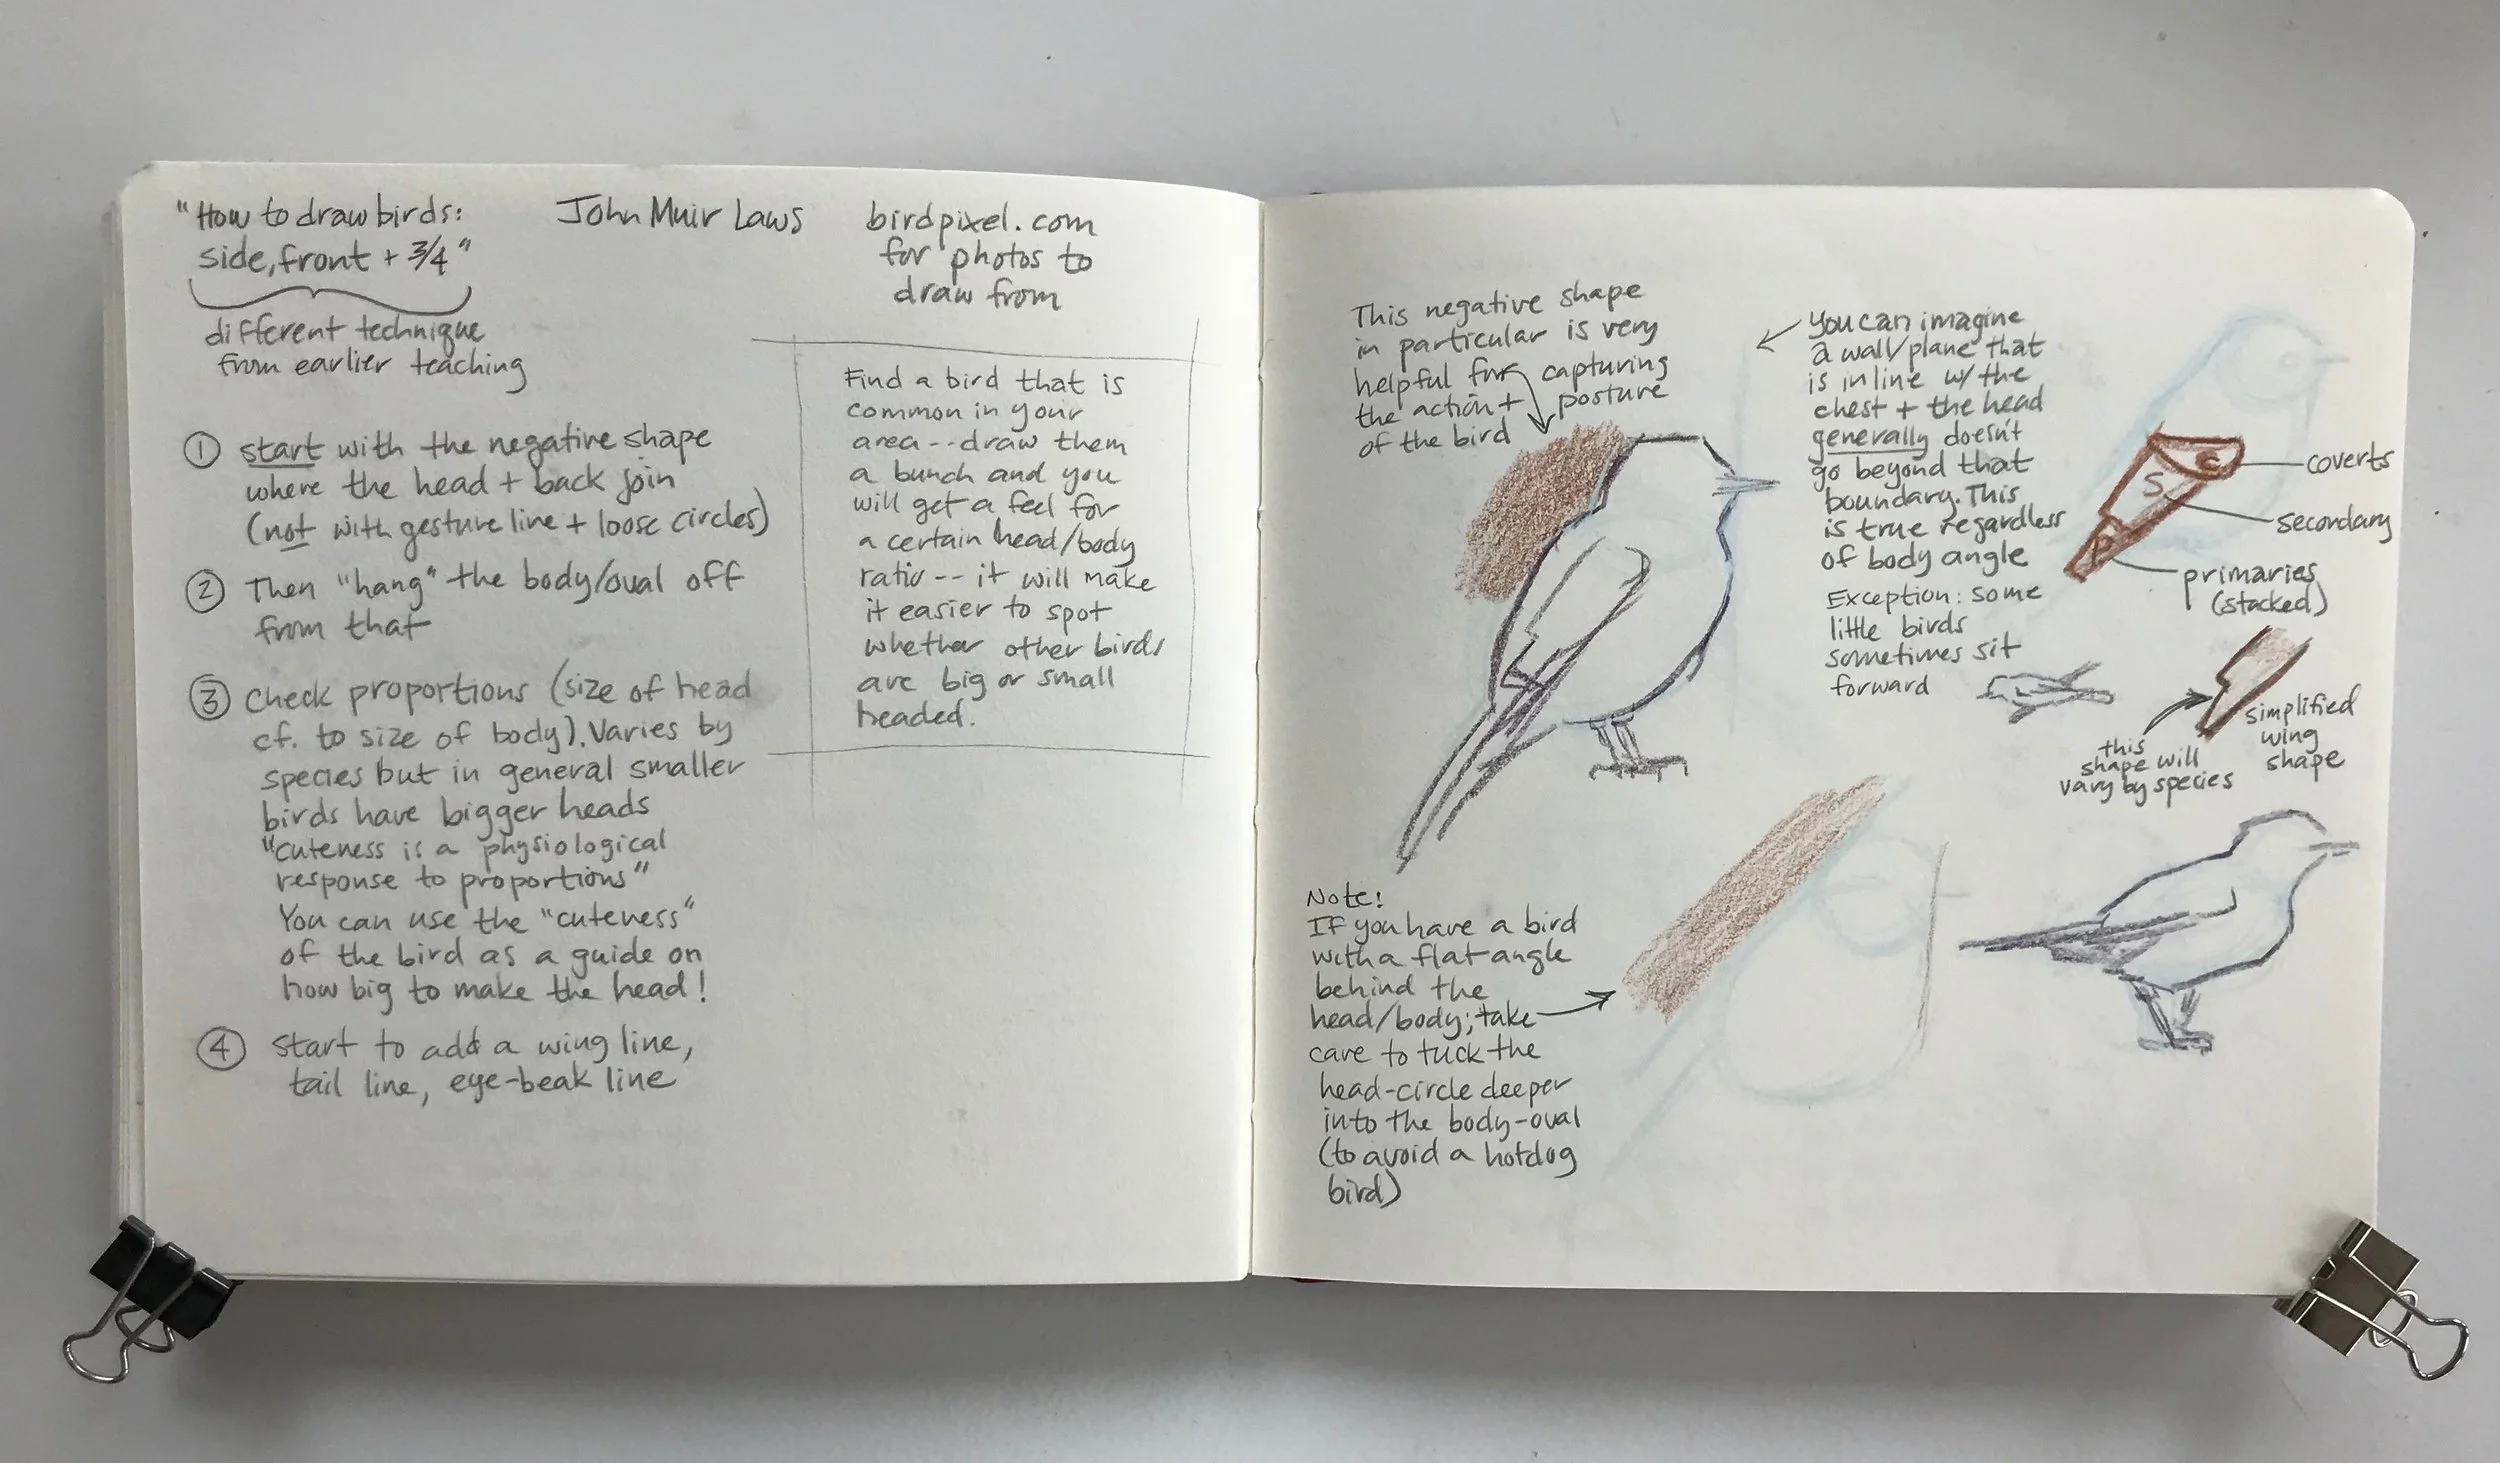 "How to draw birds:
side, front + 3/4"
different technique
from earlier teaching
John Muir Laws
birdpixel.com
for photos to
draw from
① start with the negative shape
where the head + back join
(not with gesture line + loose circles)
② Then "hang" the body/oval off
from that
③ Check proportions (size of head
cf. to size of body). Varies by
species but in general smaller
birds have bigger heads
"cuteness is a physiological
response to proportions"
You can use the "cuteness"
of the bird as a guide on
how big to make the head!
④ Start to add a wing line,
tail line, eye-beak line
Find a bird that is
common in your
area -- draw them
a bunch and you
will get a feel for
a certain head/body
ratio -- it will make
it easier to spot
whether other birds
are big or small
headed.
This negative shape
in particular is very
helpful for capturing
the action + posture
of the bird
You can imagine
a wall/plane that
is in line w/ the
chest + the head
generally doesn't
go beyond that
boundary. This
is true regardless
of body angle
Exception: some
little birds
sometimes sit
forward
C
S
P
coverts
secondary
primaries
(stacked)
simplified
wing
shape
this
shape will
vary by species
Note:
If you have a bird
with a flat angle
behind the
head/body; take
care to tuck the
head-circle deeper
into the body-oval
(to avoid a hotdog
bird)